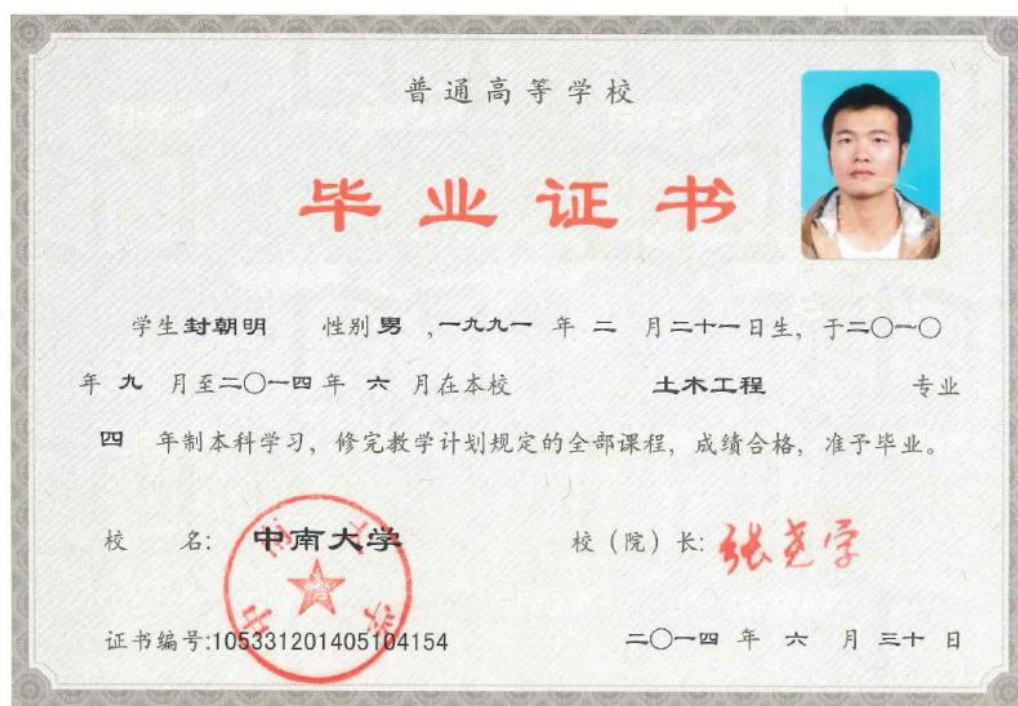 普通高等学校
毕业证书
学生封朝明 性别男 ,一九九一 年 二 月二十一日生, 于二〇一〇
年 九 月至二〇一四年 六 月在本校 土木工程 专业
四 年制本科学习, 修完教学计划规定的全部课程, 成绩合格, 准予毕业。
校 名: 中南大学 校（院）长: 张尧学
中南大学
证书编号:105331201405104154 二〇一四 年 六 月 三十 日